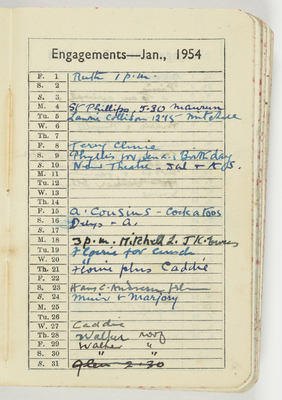 Engagements—Jan., 1954
F. 1 Ruth 1 p.m.
S. 2
S. 3
M. 4 Phillips, 5-30
Tu. 5 Laurie Collison 12.15 Mitchell
W. 6
Th. 7
F. 8 Terry Clinic
S. 9 Phyllis for Birthday
S. 10 New Theatre - Sal +
M. 11
Tu. 12
W. 13
Th. 14
F. 15 A. Cousins - Cockatoos
S. 16 Deys - A.
S. 17
M. 18 3 p.m. Mitchell L. J K.
Tu. 19 Florrie for lunch
W. 20 "
Th. 21 Florrie plus Caddie
F. 22
S. 23 Hans C. Andersen film
S. 24 Muir + Marjory
M. 25
Tu. 26
W. 27 Caddie
Th. 28 Walter roof
F. 29 Walter "
S. 30 " "
S. 31 Glen 2.30